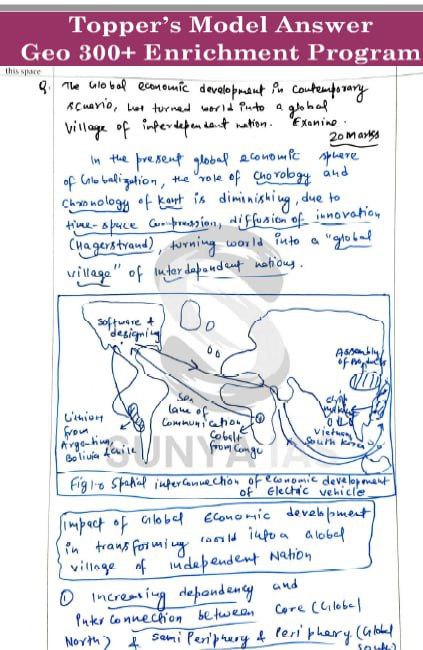 Topper's Model Answer
Geo 300+ Enrichment Program
this space
Q. The Global economic development in contemporary
scenario, has turned world into a global
village of interdependent nation. Examine.
20 Marks
In the present global economic sphere
of Globalization, the role of chorology and
chronology of Kant is diminishing, due to
time-space compression, diffusion of innovation
(Hagerstrand), turning world into a "global
village" of interdependent nations.
Software &
designing
Assembly
of Products
Sea
lane of
Communication
Lithium
from
Argentina,
Bolivia & Chile
Cobalt
from Congo
Vietnam
South Korea
SUNYA IAS
Fig 1:- Spatial interconnection of economic development
of Electric vehicle
Impact of Global Economic development
in transforming world into a Global
village of independent Nation
① Increasing dependency and
Inter connection between Core (Global
North) & Semi Periphery & Periphery (Global
South)